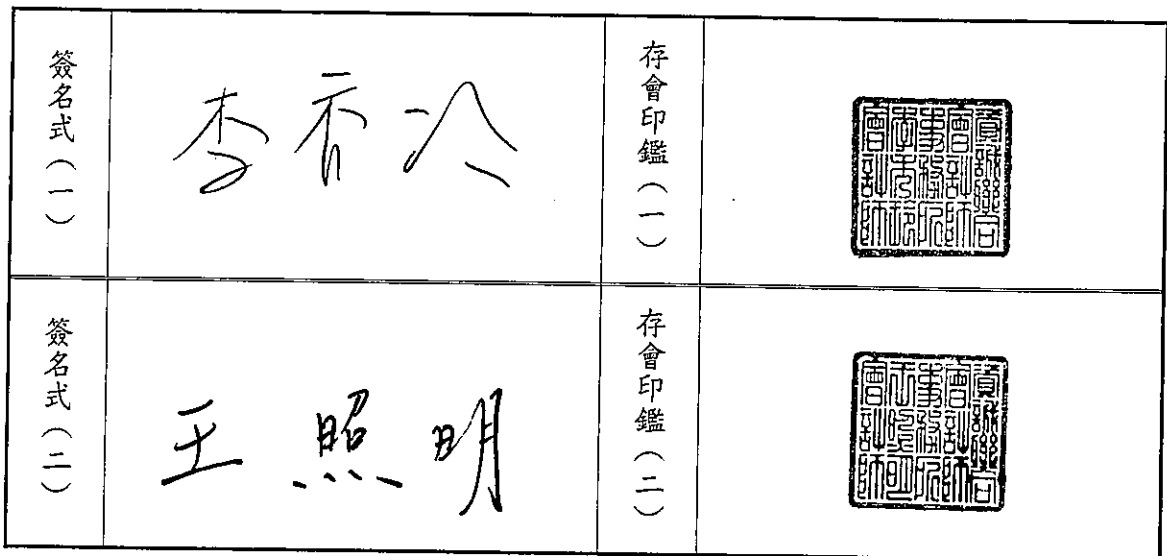 簽名式(一)
李秀玲
存會印鑑(一)
資誠聯合
會計師
事務所
李秀玲
會計師
簽名式(二)
王照明
存會印鑑(二)
資誠聯合
會計師
事務所
王照明
會計師